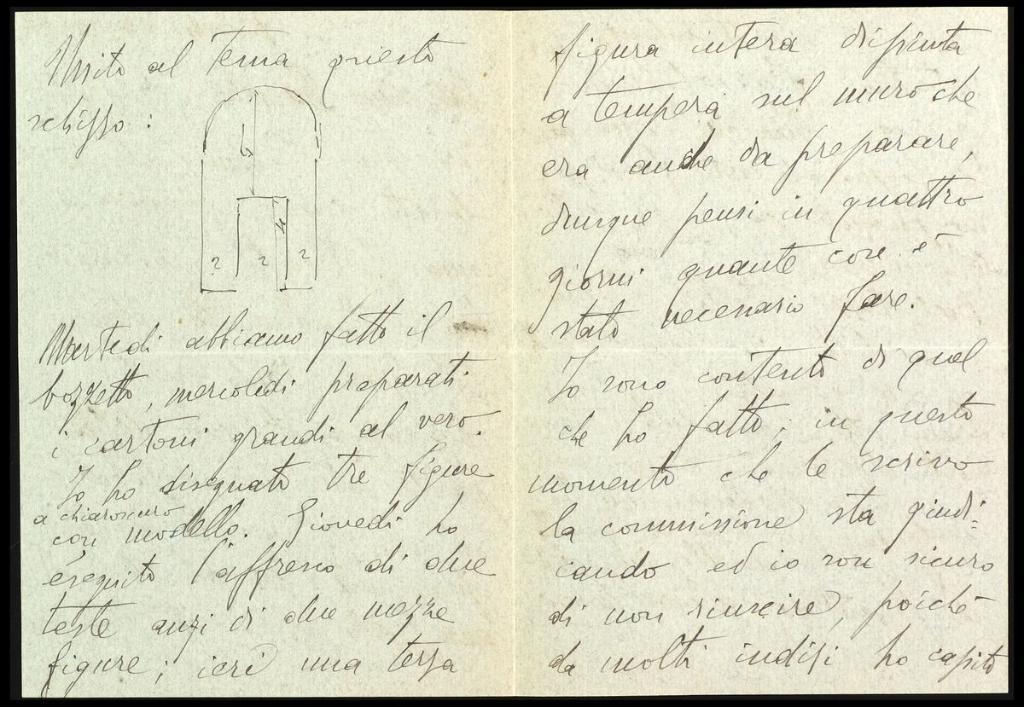 Unito al tema questo
schizzo:
6
4
2 2 2
Martedì abbiamo fatto il
bozzetto, mercoledì preparati
i cartoni grandi al vero.
Io ho disegnato tre figure
a chiaroscuro
con modello. Giovedì ho
eseguito l'affresco di due
teste anzi di due mezze
figure; ieri una terza
figura intera dipinta
a tempera sul muro che
era anche da preparare,
dunque pensi in quattro
giorni quante cose è
stato necessario fare.
Io sono contento di quel
che ho fatto; in questo
momento che le scrivo
la commissione sta giudi=
cando ed io son sicuro
di non riuscire, poichè
da molti indizi ho capito